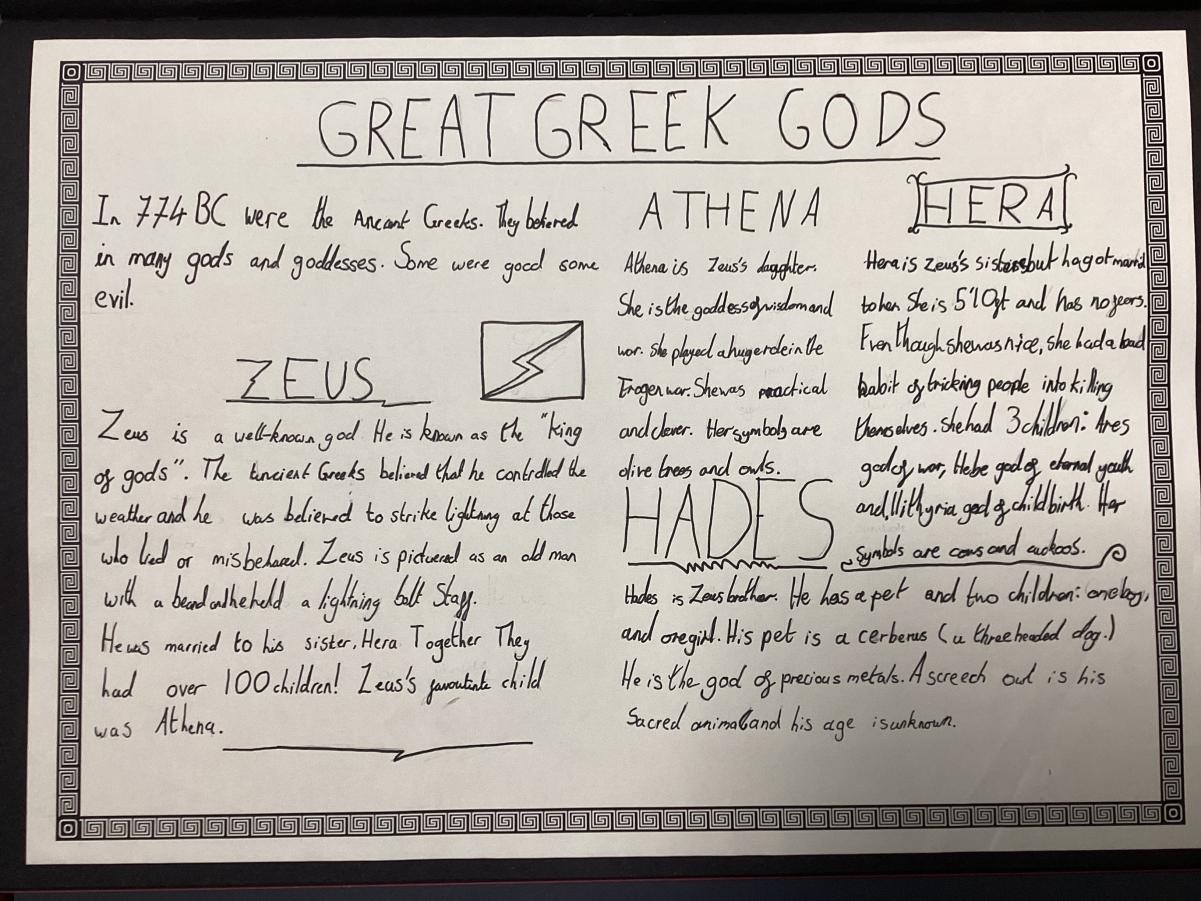 GREAT GREEK GODS
In 774 BC were the Ancant Greeks. They believed
in many gods and goddesses. Some were good some
evil.
ZEUS
Zeus is a well-known god. He is known as the "king
of gods". The Ancient Greeks believed that he controlled the
weather and he was believed to strike lightning at those
who lied or misbehaved. Zeus is pictuered as an old man
with a beard and he held a lightning bolt Staff.
He was married to his sister, Hera Together They
had over 100 children! Zeus's child
was Athena.
ATHENA
Athena is Zeus's dagghter.
She is the goddess of wisdom and
war. She played a huge role in the
Trogen war. She was practical
and clever. Her symbols are
olive trees and owls.
HERA
Hera is Zeus's but ha got
to him She is 5'10ft and has no
Even though she was nice, she had a bad
habit of tricking people into killing
themselves. She had 3 children: Ares
god of war, Hebe god of eternal youth
and Ilithyria god of childbirth. Her
symbols are cows and cuckoos.
HADES
Hades is Zeus brother. He has a pet and two children: one boy,
and one girl. His pet is a cerberus (a three headed dog.)
He is the god of precious metals. A screech owl is his
Sacred animal and his age is unknown.